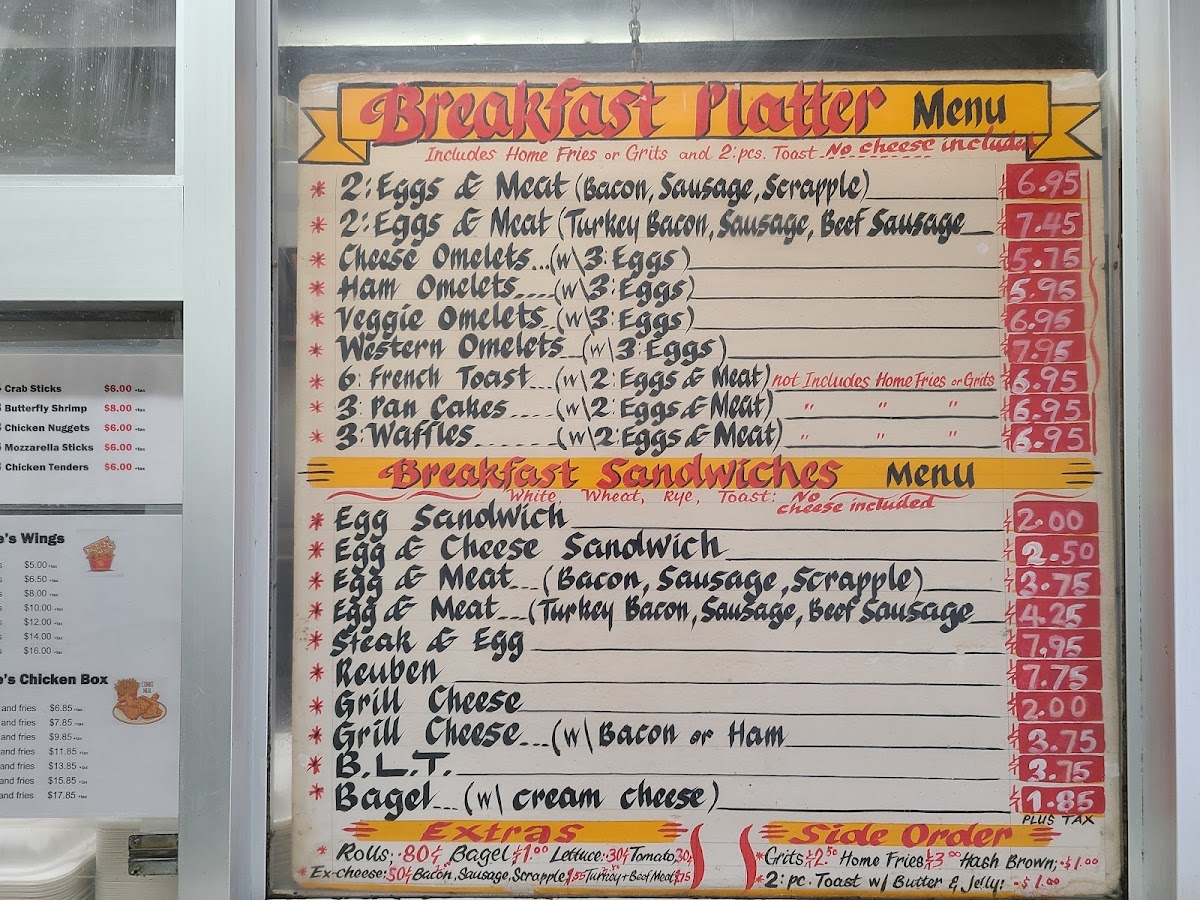 Crab Sticks $6.00 +tax
Butterfly Shrimp $8.00 +tax
Chicken Nuggets $6.00 +tax
Mozzarella Sticks $6.00 +tax
Chicken Tenders $6.00 +tax
e's Wings
$5.00 +tax
$6.50 +tax
$8.00 +tax
$10.00 +tax
$12.00 +tax
$14.00 +tax
$16.00 +tax
e's Chicken Box
and fries $6.85 +tax
and fries $7.85 +tax
and fries $9.85 +tax
and fries $11.85 +tax
and fries $13.85 +tax
and fries $15.85 +tax
and fries $17.85 +tax
Breakfast Platter Menu
Includes Home Fries or Grits and 2:pcs. Toast No cheese included
* 2:Eggs & Meat (Bacon, Sausage, Scrapple) 6.95
* 2:Eggs & Meat (Turkey Bacon, Sausage, Beef Sausage 7.45
* Cheese Omelets...(w\3:Eggs) 5.75
* Ham Omelets....(w\3:Eggs) 5.95
* Veggie Omelets..(w\3:Eggs) 6.95
* Western Omelets..(w\3:Eggs) 7.95
* 6: French Toast...(w\2:Eggs & Meat) not Includes Home Fries or Grits 6.95
* 3: Pan Cakes....(w\2:Eggs & Meat) " " " 6.95
* 3:Waffles.......(w\2:Eggs & Meat) " " " 6.95
Breakfast Sandwiches Menu
White, Wheat, Rye, Toast: No cheese included
* Egg Sandwich 2.00
* Egg & Cheese Sandwich 2.50
* Egg & Meat...(Bacon, Sausage, Scrapple) 3.75
* Egg & Meat...(Turkey Bacon, Sausage, Beef Sausage 4.25
* Steak & Egg 7.95
* Reuben 7.75
* Grill Cheese 2.00
* Grill Cheese...(w\Bacon or Ham 3.75
* B.L.T. 3.75
* Bagel...(w\ cream cheese) 1.85
PLUS TAX
Extras
* Rolls; .80¢ Bagel $1.00 Lettuce: 30¢ Tomato, 30¢
* Ex-cheese: 50¢ Bacon, Sausage, Scrapple Turkey + Beef Meat
Side Order
* Grits $2.50 Home Fries $3.00 Hash Brown; $1.00
* 2: pc. Toast w/ Butter & Jelly: -$1.00